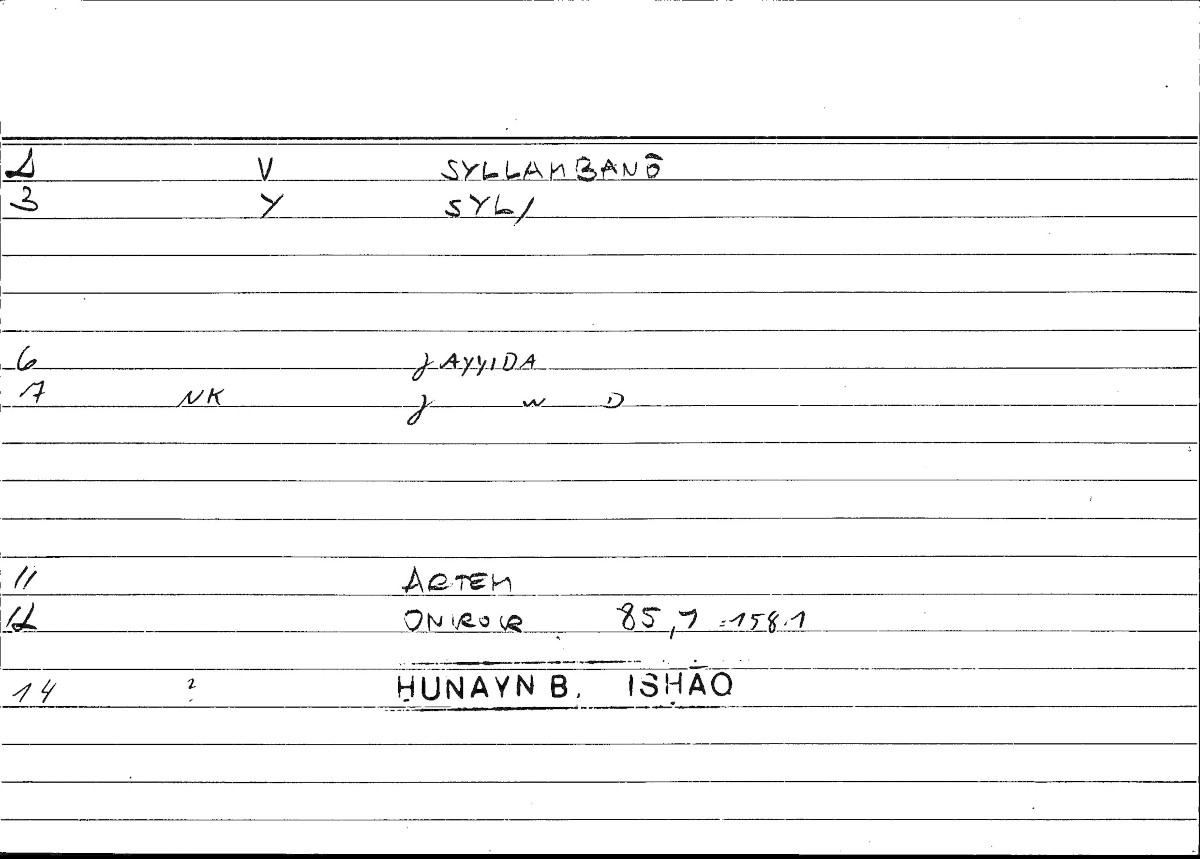 2 V SYLLAMBANŌ
3 Y SYL/
6 JAYYIDA
7 NK J W D
11 ARTEM
12 ONIROCR 85,7 =158.1
14 ? ḤUNAYN B. ISḤĀQ